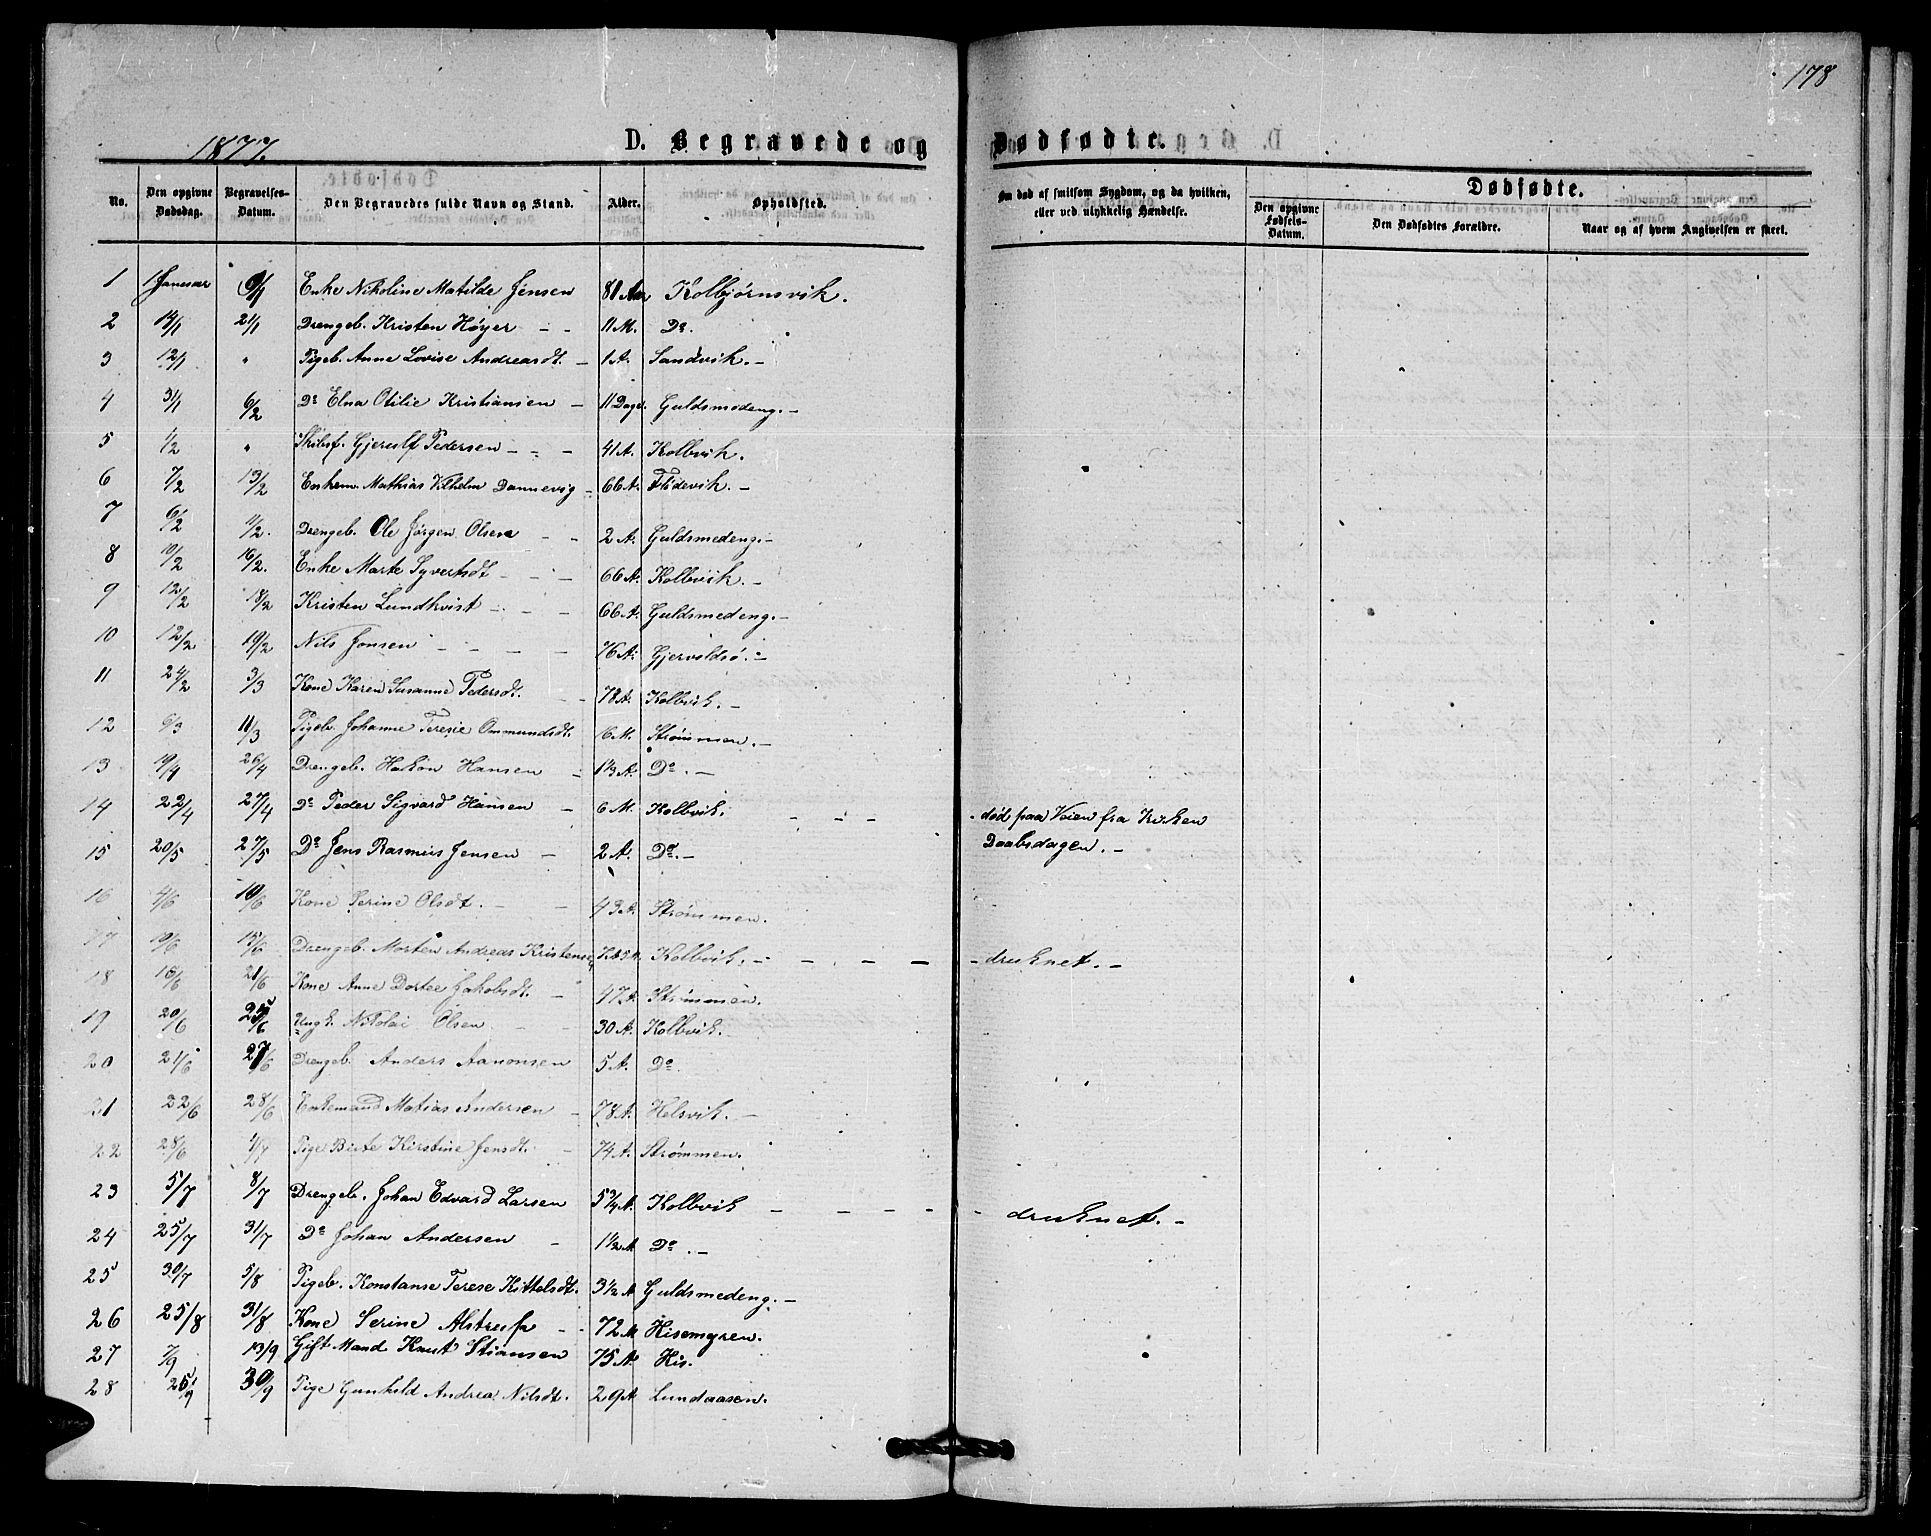 178
1877.
D. Begravede og Dødfødte.
No. Den opgivne Dødsdag. Begravelses-Datum. Den Begravedes fulde Navn og Stand. Alder. Opholdsted. Om død af smitsom Sygdom, og da hvilken, eller ved ulykkelig Hændelse. Dødfødte. Den opgivne Fødsels-Datum. Den Dødfødtes Forældre. Naar og af hvem Angivelsen er skeet.
1 1 Januar Enke Nikoline Matilde Jensen 81 Aar Kolbjørnsvik.
2 14/1 21/1 Drengeb. Kristen Høyer - - 11 M. Do.
3 12/1 " Pigeb. Anne Lovise Andreasdt. - 1 A. Sandvik. -
4 31/1 6/2 Do Elna Otilie Kristiansen - 11 Dage. Guldsmedeng. -
5 1/2 " Skibsf. Gjerulf Pedersen - - - 41 A. Kolbvik.
6 7/2 13/2 Enkem. Mathias Vilhelm Dannevig - 66 A. Flödevik. -
7 6/2 11/2. Drengeb. Ole Jørgen Olsen - - 2 A. Guldsmedeng. -
8 10/2 16/2. Enke Marte Syvertsdt - - - 66 A. Kolbvik. -
9 12/2 18/2 Kristen Lundkvist - - - 66 A. Guldsmedeng. -
10 12/2 19/2 Nils Jonsen - - - - 76 A. Gjervoldsø. -
11 24/2 3/3 Kone Karen Susanne Pedersdt. - - 78 A. Kolbvik. -
12 6/3 11/3 Pigeb. Johanne Teresie Ommundsdt. 6 M. Strømmen. -
13 19/4 26/4 Drengeb. Hakon Hansen - 1 1/3 A. Do. -
14 22/4 27/4 Do Peder Sigvard Hansen - 6 M. Kolbvik. - - - - død paa Veien fra Kirken
15 20/5 27/5 Do Jens Rasmus Jensen - 2 A. Do. - Daabsdagen. -
16 4/6 10/6 Kone Serine Olsdt. - - 43 A. Strømmen.
17 10/6 15/6 Drengeb. Morten Andreas Kristensen Kolbvik. - - - - - druknet. -
18 16/6 21/6 Kone Anne Dortee Jakobsdt. - 47 A. Strømmen.
19 20/6 25/6 Ungk. Nikolai Olsen - - 30 A. Kolbvik.
20 21/6 27/6 Drengeb. Anders Aanonsen 5 A. Do.
21 22/6 28/6 Enkemand Matias Andersen - 78 A. Helsvik. -
22 28/6 4/7 Pige Berte Kirstine Jensdt. - 74 A. Strømmen.
23 5/7 8/7 Drengeb. Johan Edvard Larsen 5 3/4 A. Kolbvik - - - - - druknet. -
24 25/7 31/7 Do Johan Andersen - 1 1/2 A Do. -
25 30/7 5/8 Pigeb. Konstanse Terese Kittelsdt. 3 1/2 A Guldsmedeng. -
26 25/8 31/8 Kone Serine Alstrup - - 72 Hisemyren.
27 7/9 13/9 Gift Mand Knut Stiansen 75 A His.
28 25/9 30/9 Pige Gunhild Andrea Nilsdt. 29 A Lundaasen.